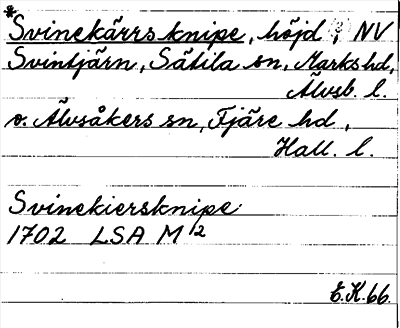 *
Svinekärrs knipe, höjd, NV
Svintjärn, Sätila sn, Marks hd,
Älvsb. l.
o. Älvsåkers sn, Fjäre hd,
Hall. l.
Svinekiersknipe
1702 LSA M 12
E.K. 66.